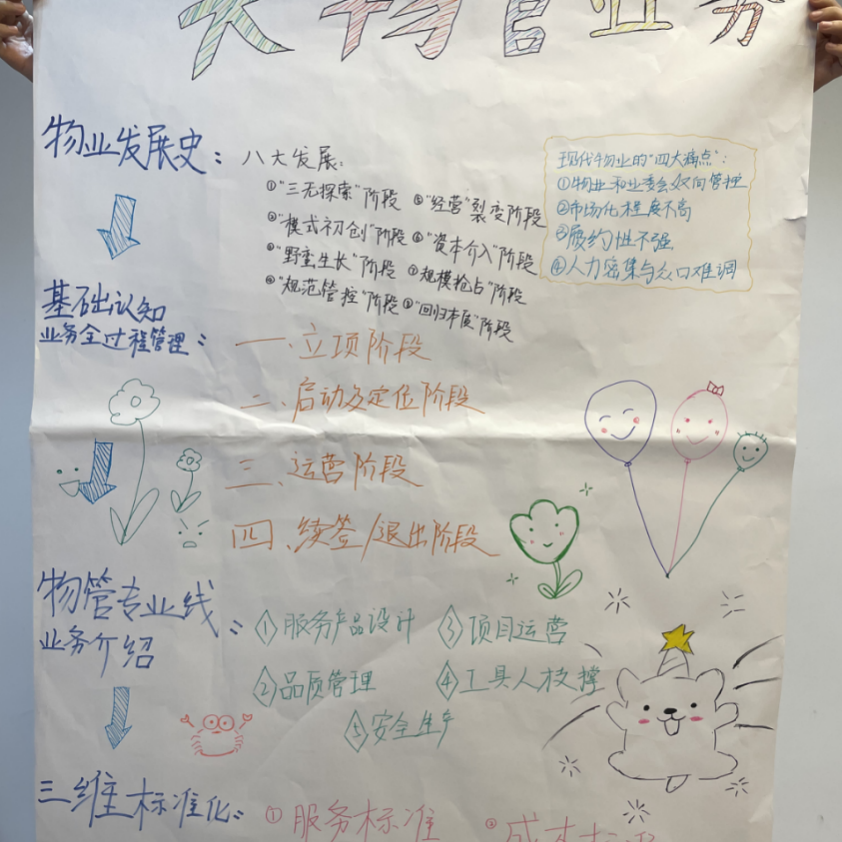 大物管业务
物业发展史：
八大发展：
①"三无探索"阶段 ⑤"经营"裂变阶段
②"模式初创"阶段 ⑥"资本介入"阶段
③"野蛮生长"阶段 ⑦"规模抢占"阶段
④"规范管控"阶段 ⑧"回归本质"阶段
现代物业的"四大痛点"：
①物业和业委会双向管理
②市场化程度不高
③履约性不强
④人力密集与众口难调
基础认知
业务全过程管理：
一、立项阶段
二、启动及定位阶段
三、运营阶段
四、续签/退出阶段
物管专业线
业务介绍：
①服务产品设计 ③项目运营
②品质管理 ④工具人技撑
⑤安全生产
三维标准化：
①服务标准 ②成本标准